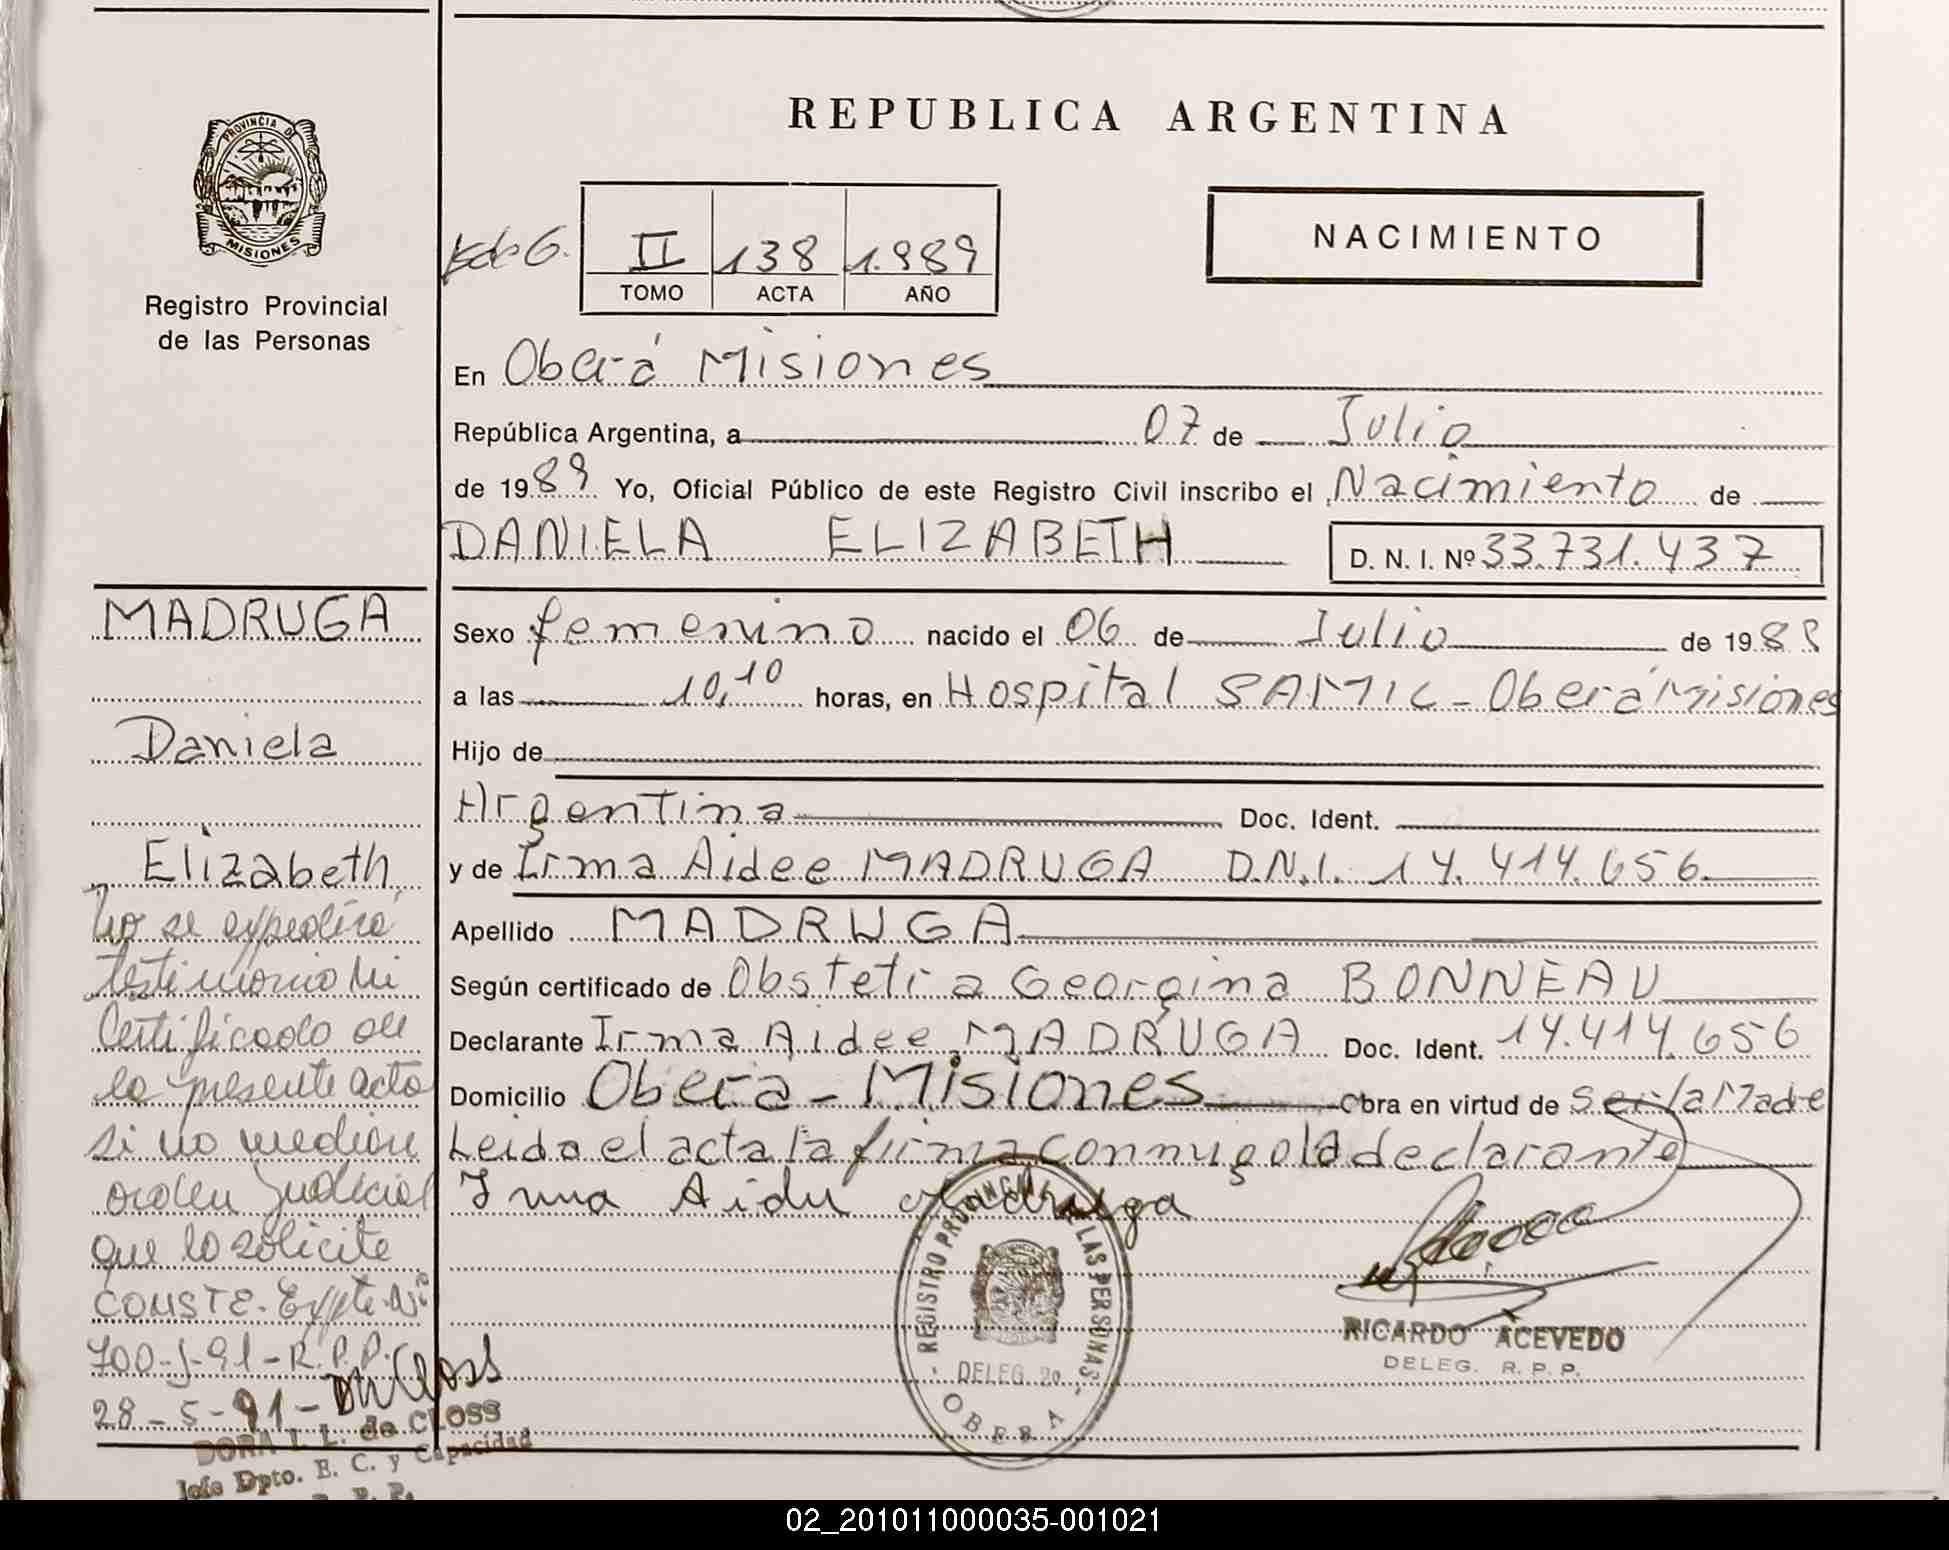 PROVINCIA DE
MISIONES
Registro Provincial
de las Personas
MADRUGA
Daniela
Elizabeth
No se expedirá
testimonio Ni
Certificado de
la presente acta
si no median
orden Judicial
que lo solicite
CONSTE. Expte. Nº
700-J-91-R.P.P.
28-5-91-
DORA I. L. de CLOSS
Jefe Dpto. E. C. y Capacidad
R. P. P.
REPUBLICA ARGENTINA
II 138 1.989
TOMO ACTA AÑO
NACIMIENTO
En Oberá Misiones
República Argentina, a 07 de Julio
de 1989 Yo, Oficial Público de este Registro Civil inscribo el Nacimiento de
DANIELA ELIZABETH D. N. I. Nº 33.731.437
Sexo femenino nacido el 06 de Julio de 1989
a las 10,10 horas, en Hospital SAMIC - Oberá Misiones
Hijo de
Argentina Doc. Ident.
y de Irma Aidee MADRUGA D.N.I. 14.414.656
Apellido MADRUGA
Según certificado de Obstetra Georgina BONNEAU
Declarante Irma Aidee MADRUGA Doc. Ident. 14.414.656
Domicilio Obera - Misiones Obra en virtud de Ser la Madre
Leida el acta la firma conmigo la declarante
Irma Aidee Madruga
REGISTRO PROVINCIAL DE LAS PERSONAS
DELEG. 2a
OBERA
RICARDO ACEVEDO
DELEG. R. P. P.
02_201011000035-001021